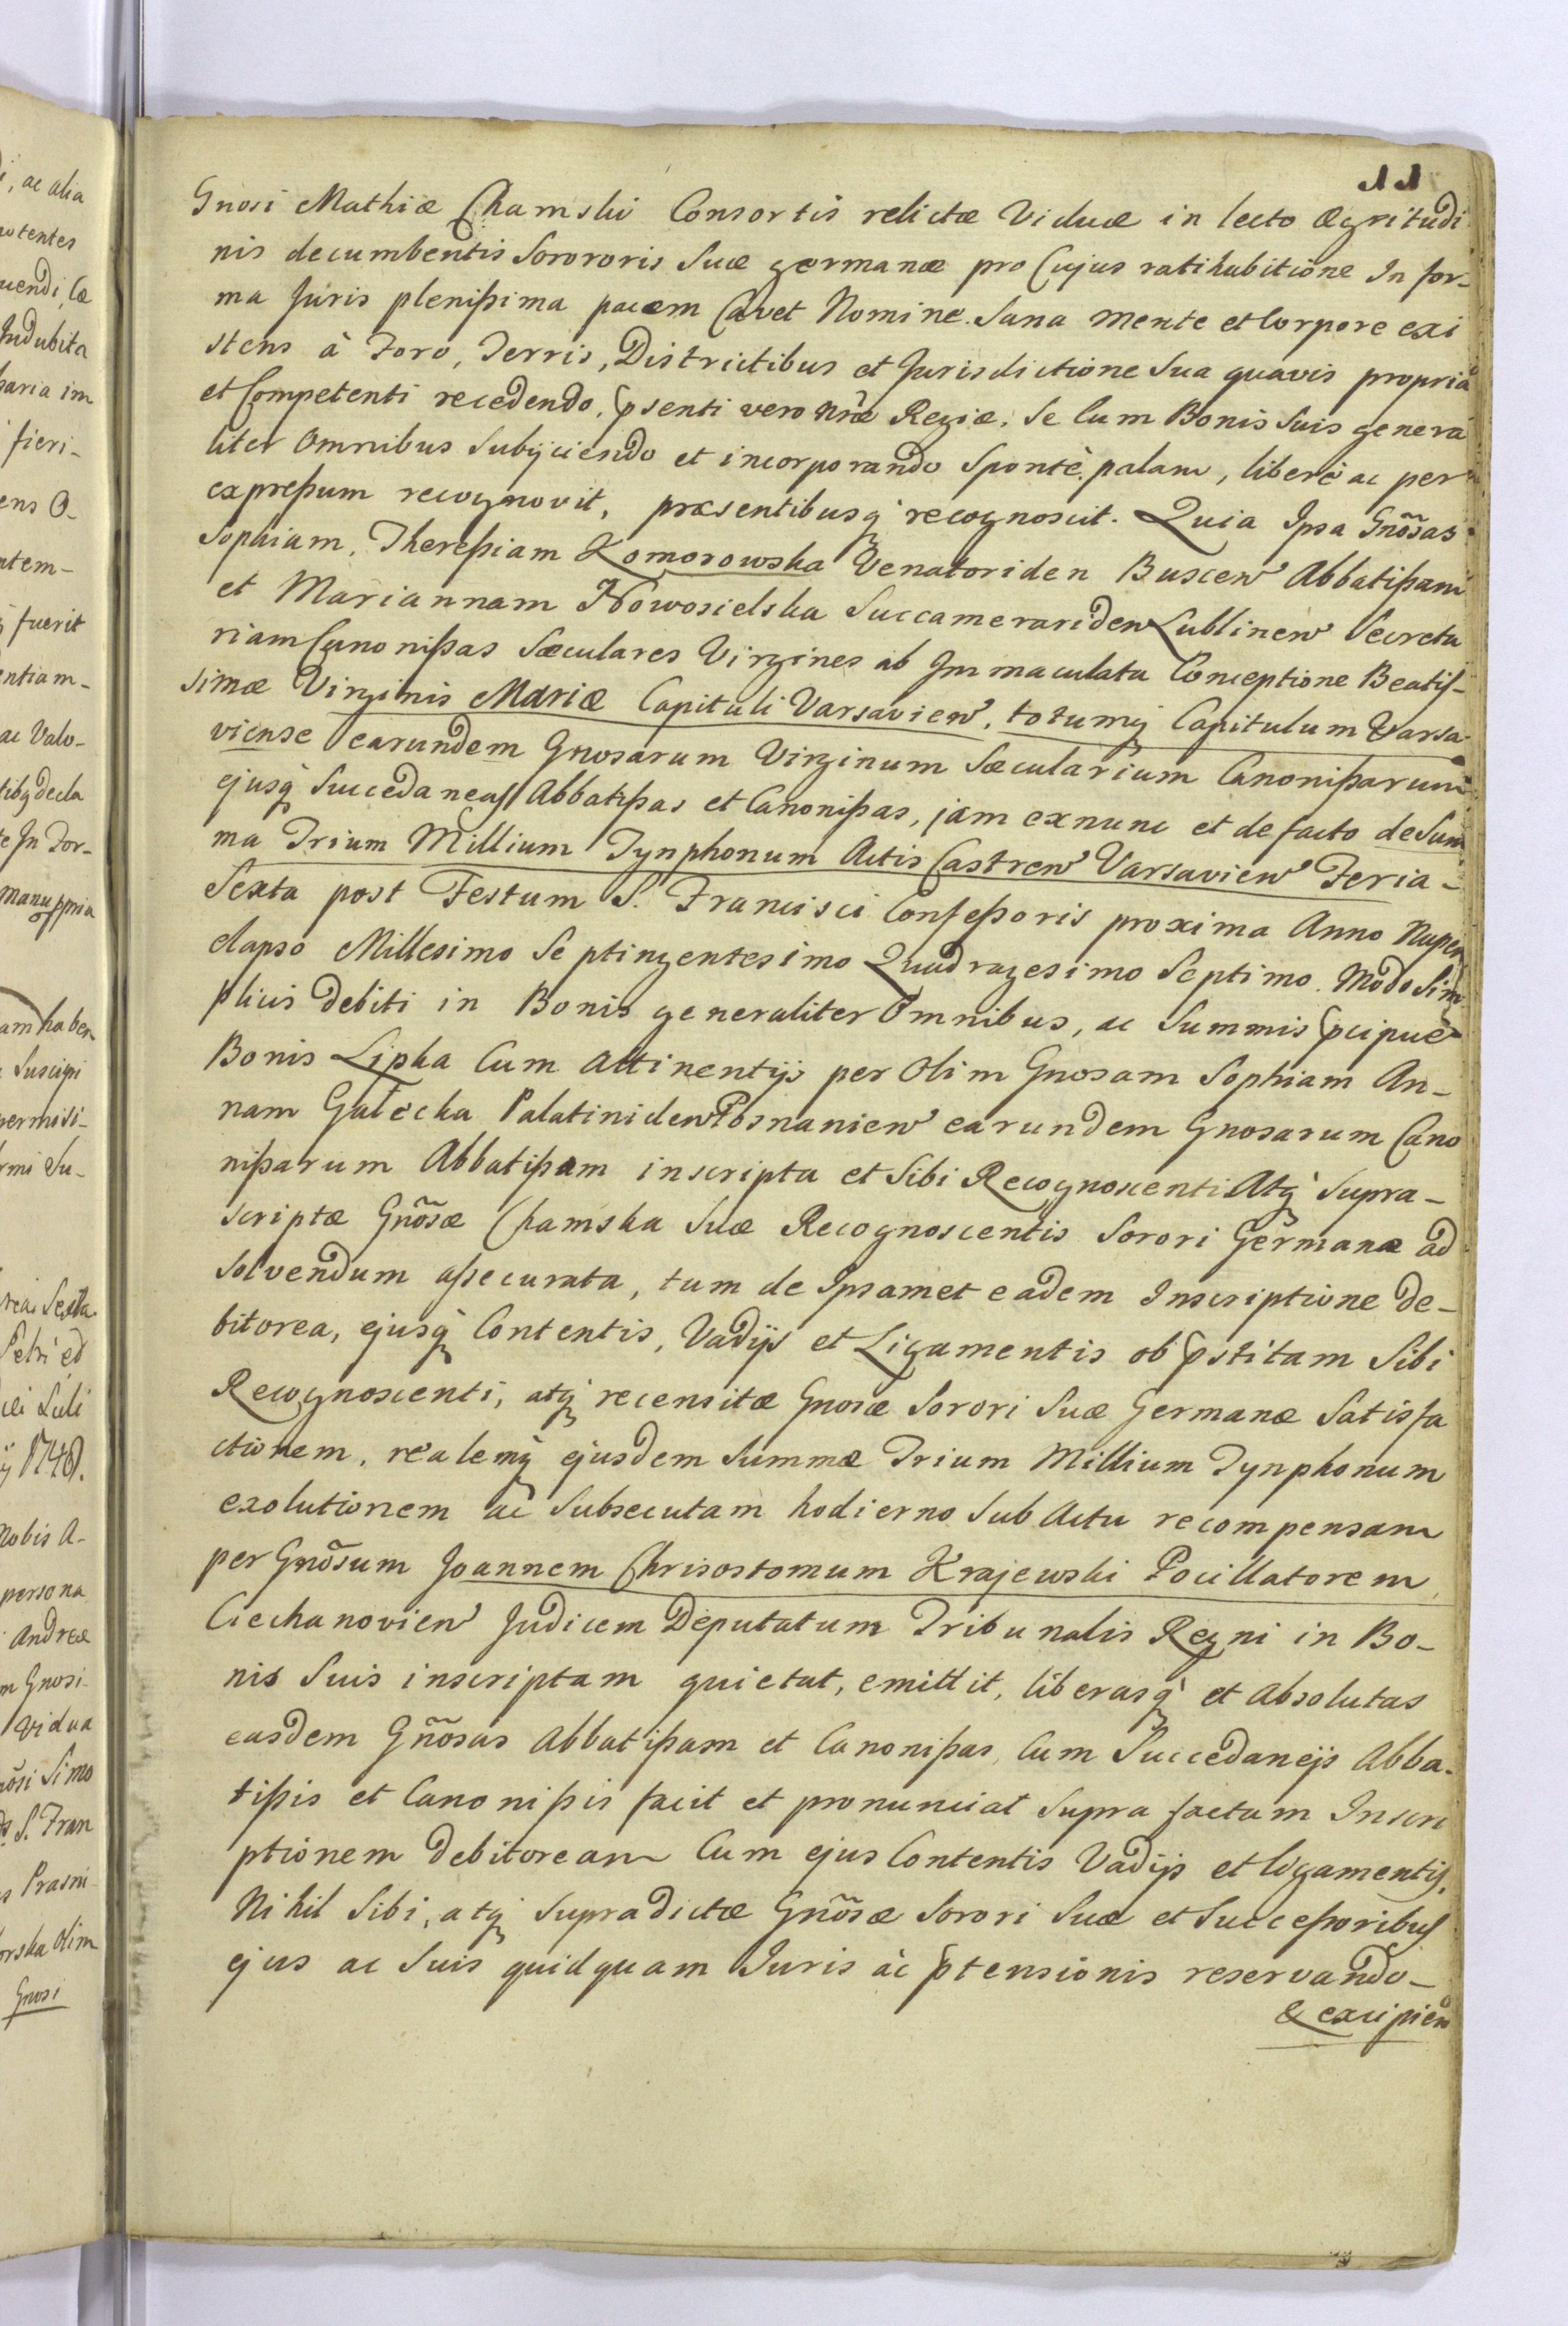 11
Gnosi Mathiæ Chamski Consortis relictæ Viduæ in lecto Ægritudi
nis decumbentis Sorororis Suæ germanæ pro Cujus ratihabitione In for-
ma Juris plenißima pacem Cavet Nomine. Sana mente et Corpore exi
stens à Foro, Terris, Districtibus et Jurisdictione Sua quavis propria
et Competenti recedendo, pſenti vero Nr̃æ Regiæ, Se Cum Bonis Suis genera
liter Omnibus Subÿciendo et incorporando Spontè palam, liberè ac per
expreßum recognovit, præsentibusq́ recognoscit. Quia Ipsa Gnõsas
Sophiam, Thereßiam Komorowska Venatoriden Buscen̄ Abbatißam
et Mariannam Nowosielska Succamerariden Lublinen̄ Secreta
riam Canonißas Sæculares Virgines ab Immaculata Conceptione Beatiſ-
simæ Virginis Mariæ Capituli Varsavien̄, totumq́ Capitulum Varsa
viense earundem Gnosarum Virginum Sæcularium Canonißarum
ejusq́ Succedaneaſ Abbatißas et Canonißas, jam exnunc et de facto de Sum
ma Trium Millium Tynphonum Actis Castren̄ Varsavien̄ Feria-
Sexta post Festum S. Francisci Confeßoris proxima Anno Nuper
elapso Millesimo Septingentesimo Quadragesimo Septimo. Modo Sim
plicis debiti in Bonis generaliter Omnibus, ac Summis pcipuè
Bonis Lipka Cum Attinentÿs per Olim Gnosam Sophiam An-
nam Gałecka Palatiniden Posnanien̄ earundem Gnosarum Cano
nißarum Abbatißam inscripta et Sibi Recognoscenti Atq́ Supra-
scriptæ Gnõsæ Chamska Suæ Recognoscentis Sorori Germanæ ad
Solvendum aßecurata, tum de Ipsamet eadem Inscriptione De-
bitorea, ejusq́ Contentis, Vadÿs et Ligamentis ob pstitam Sibi
Recognoscenti, atq́ recensitæ Gnosæ Sorori Suæ Germanæ Satisfa
ctionem, realemq́ ejusdem Summæ Trium Millium Tynphonum
exolutionem ac Subsecutam hodierno Sub Actu recompensam
per Gnõsum Joannem Chrisostomum Krajewski Pocillatorem
Ciechanovien̄ Judicem Deputatum Tribunalis Regni in Bo-
nis Suis inscriptam quietat, emittit, liberasq́ et Absolutas
easdem Gnõsas Abbatißam et Canonißas, Cum Succedaneÿs Abba-
tißis et Canonißis facit et pronunciat Supra factam Inscri
ptionem Debitoream Cum ejus Contentis Vadÿs et ligamentiſ.
Nihil Sibi, atq́ Supradictæ Gnõsæ Sorori Suæ et Succeßoribuſ
ejus ac Suis quidquam Juris ac ptensionis reservando-
& excipien̄